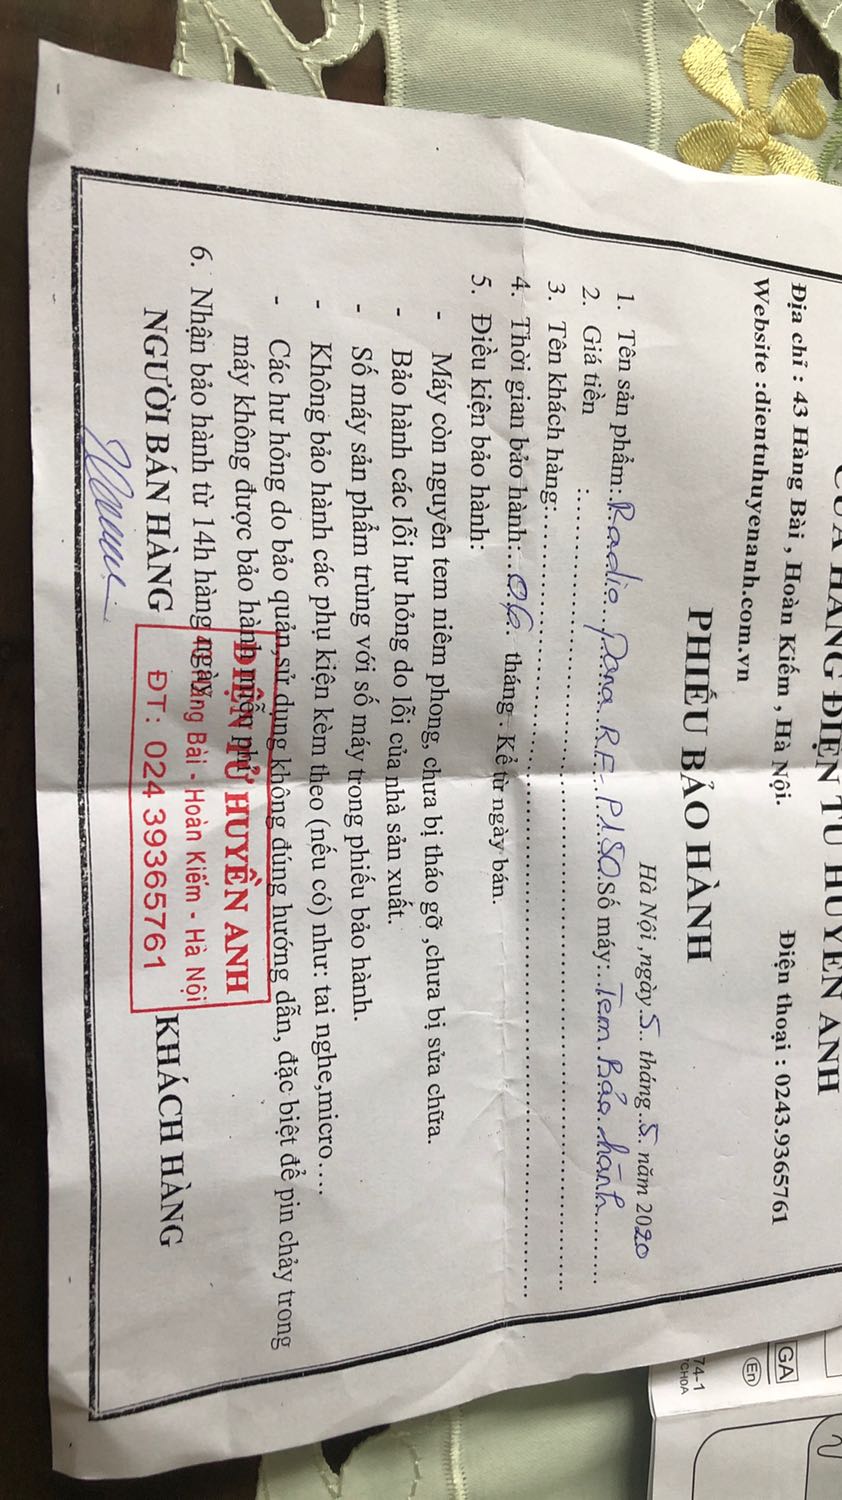 CỬA HÀNG ĐIỆN TỬ HUYỀN ANH
Địa chỉ : 43 Hàng Bài , Hoàn Kiếm , Hà Nội. Điện thoại : 0243.9365761
Website :dientuhuyenanh.com.vn
PHIẾU BẢO HÀNH
Hà Nội ,ngày 5.. tháng..5. năm 2020
1. Tên sản phẩm: Radio Pana RF P150 Số máy: Tem Bảo hành
2. Giá tiền :
3. Tên khách hàng:
4. Thời gian bảo hành:...06. tháng . Kể từ ngày bán.
5. Điều kiện bảo hành:
- Máy còn nguyên tem niêm phong, chưa bị tháo gỡ ,chưa bị sửa chữa.
- Bảo hành các lỗi hư hỏng do lỗi của nhà sản xuất.
- Số máy sản phẩm trùng với số máy trong phiếu bảo hành.
- Không bảo hành các phụ kiện kèm theo (nếu có) như: tai nghe,micro....
- Các hư hỏng do bảo quản,sử dụng không đúng hướng dẫn, đặc biệt để pin chảy trong
máy không được bảo hành miễn phí
6. Nhận bảo hành từ 14h hàng ngày
NGƯỜI BÁN HÀNG KHÁCH HÀNG
ĐIỆN TỬ HUYỀN ANH
43 Hàng Bài - Hoàn Kiếm - Hà Nội
ĐT: 024 39365761
GA
En
74-1